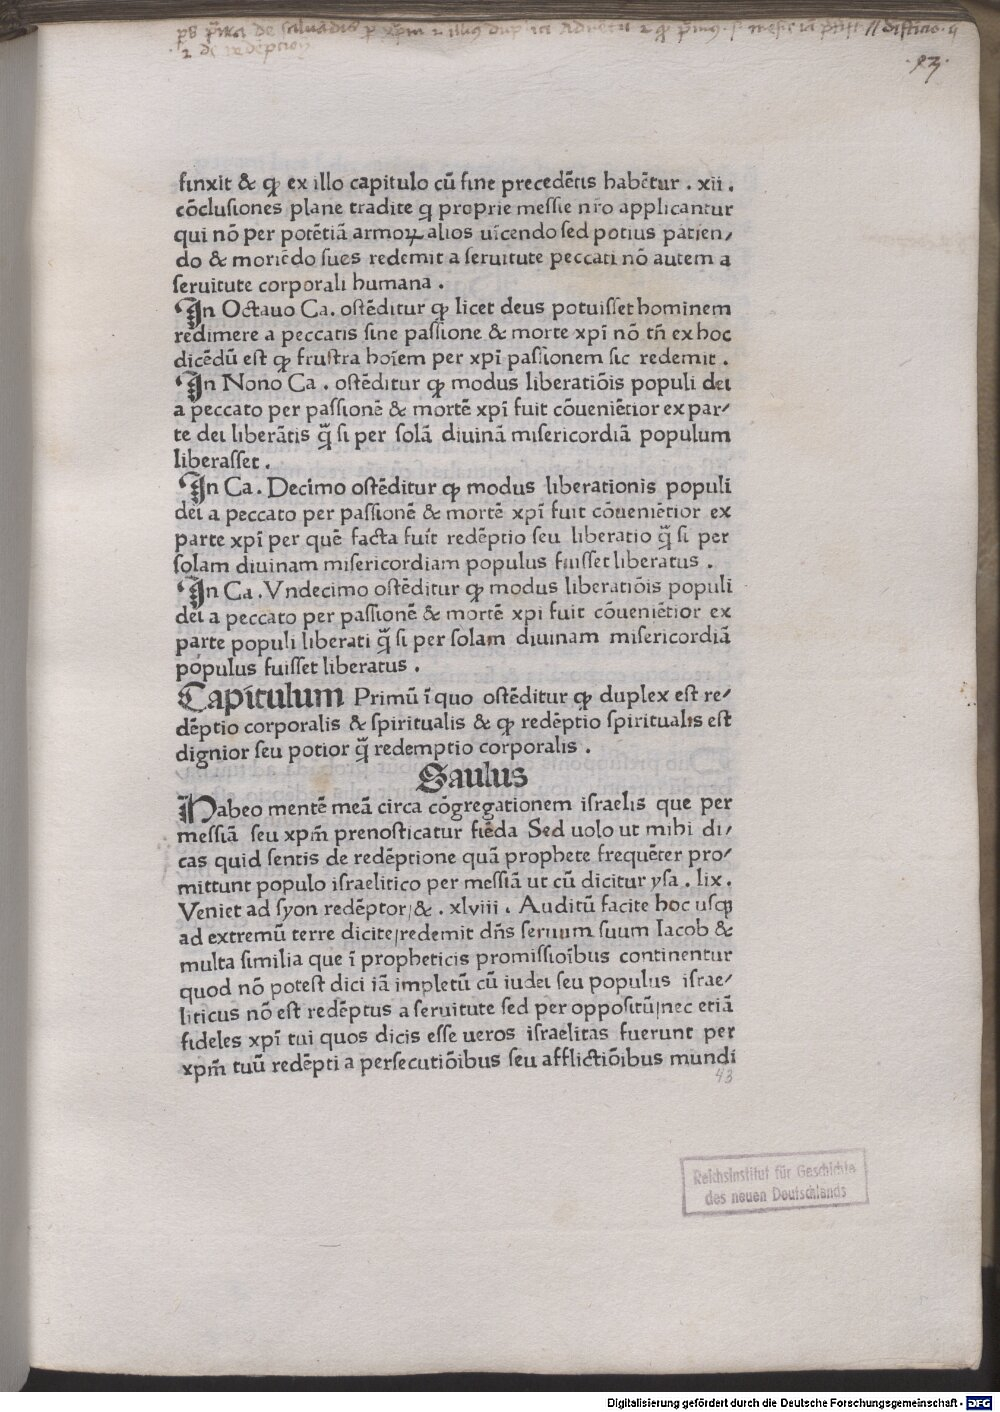 .43.
finxit & ꝙ ex illo capitulo cū fine precedētis habētur . xii .
cōclusiones plane tradite q̄ proprie messie nr̄o applicantur
qui nō per potētiā armoꝝ alios uīcendo sed potius patien/
do & moriēdo sues redemit a seruitute peccati nō autem a
seruitute corporali humana .
In Octauo Ca. ostēditur ꝙ licet deus potuisset hominem
redimere a peccatis sine passione & morte xpī nō tn̄ ex hoc
dicēdū est ꝙ frustra hoīem per xpī passionem sic redemit .
In Nono Ca . ostēditur ꝙ modus liberatiōis populi dei
a peccato per passionē & mortē xpī fuit cōueniētior ex par/
te dei liberātis q̄ si per solā diuinā misericordiā populum
liberasset .
In Ca . Decimo ostēditur ꝙ modus liberationis populi
dei a peccato per passionē & mortē xpī fuit cōueniētior ex
parte xpī per quē facta fuit redēptio seu liberatio q̄ si per
solam diuinam misericordiam populus fuisset liberatus .
In Ca . Vndecimo ostēditur ꝙ modus liberatiōis populi
dei a peccato per passionē & mortē xpi fuit cōueniētior ex
parte populi liberati q̄ si per solam diuinam misericordiā
populus fuisset liberatus .
Capitulum Primū ī quo ostēditur ꝙ duplex est re/
dēptio corporalis & spiritualis & ꝙ redēptio spiritualis est
dignior seu potior q̄ redemptio corporalis .
Saulus
Habeo mentē meā circa cōgregationem israelis que per
messiā seu xpm̄ prenosticatur fiēda Sed uolo ut mihi di/
cas quid sentis de redēptione quā prophete frequēter pro/
mittunt populo israelitico per messiā ut cū dicitur ysa . lix .
Veniet ad syon redēptor/& . xlviii . Auditū facite hoc usqꝫ
ad extremū terre dicite/redemit dn̄s seruum suum Iacob &
multa similia que ī propheticis promissioībus continentur
quod nō potest dici iā impletū cū iudei seu populus israe/
liticus nō est redēptus a seruitute sed per oppositū/nec etiā
fideles xpī tui quos dicis esse ueros israelitas fuerunt per
xpm̄ tuū redēpti a persecutiōibus seu afflictiōibus mundi
43
Reichsinstitut für Geschichte
des neuen Deutschlands
Digitalisierung gefördert durch die Deutsche Forschungsgemeinschaft - DFG